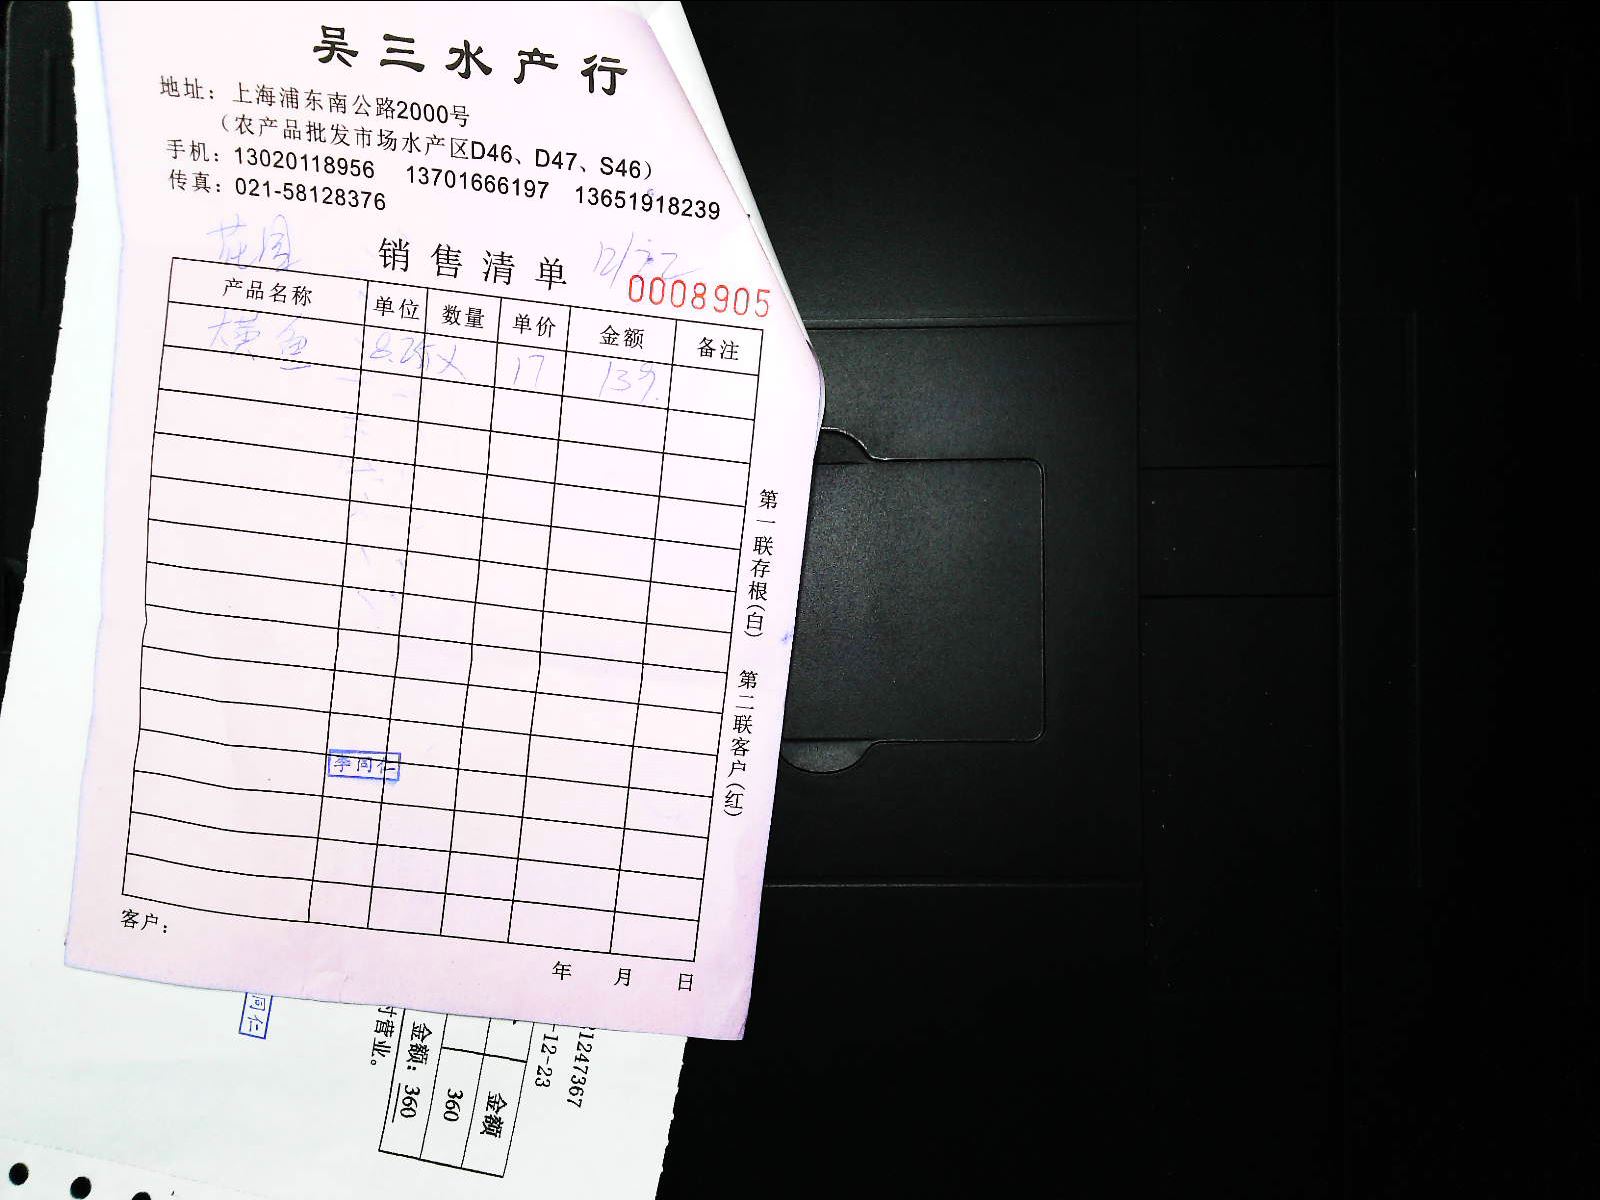 吴三水产行
地址：上海浦东南公路2000号
（农产品批发市场水产区D46、D47、S46）
手机：13020118956 13701666197 13651918239
传真：021-58128376
花园
销售清单
0008905
产品名称 单位 数量 单价 金额 备注
大黄鱼 8.25 17 139
第一联存根(白) 第二联客户(红)
李同仁
客户：
年 月 日
同仁
时营业。
金额：360
360
金额
-12-23
1247367